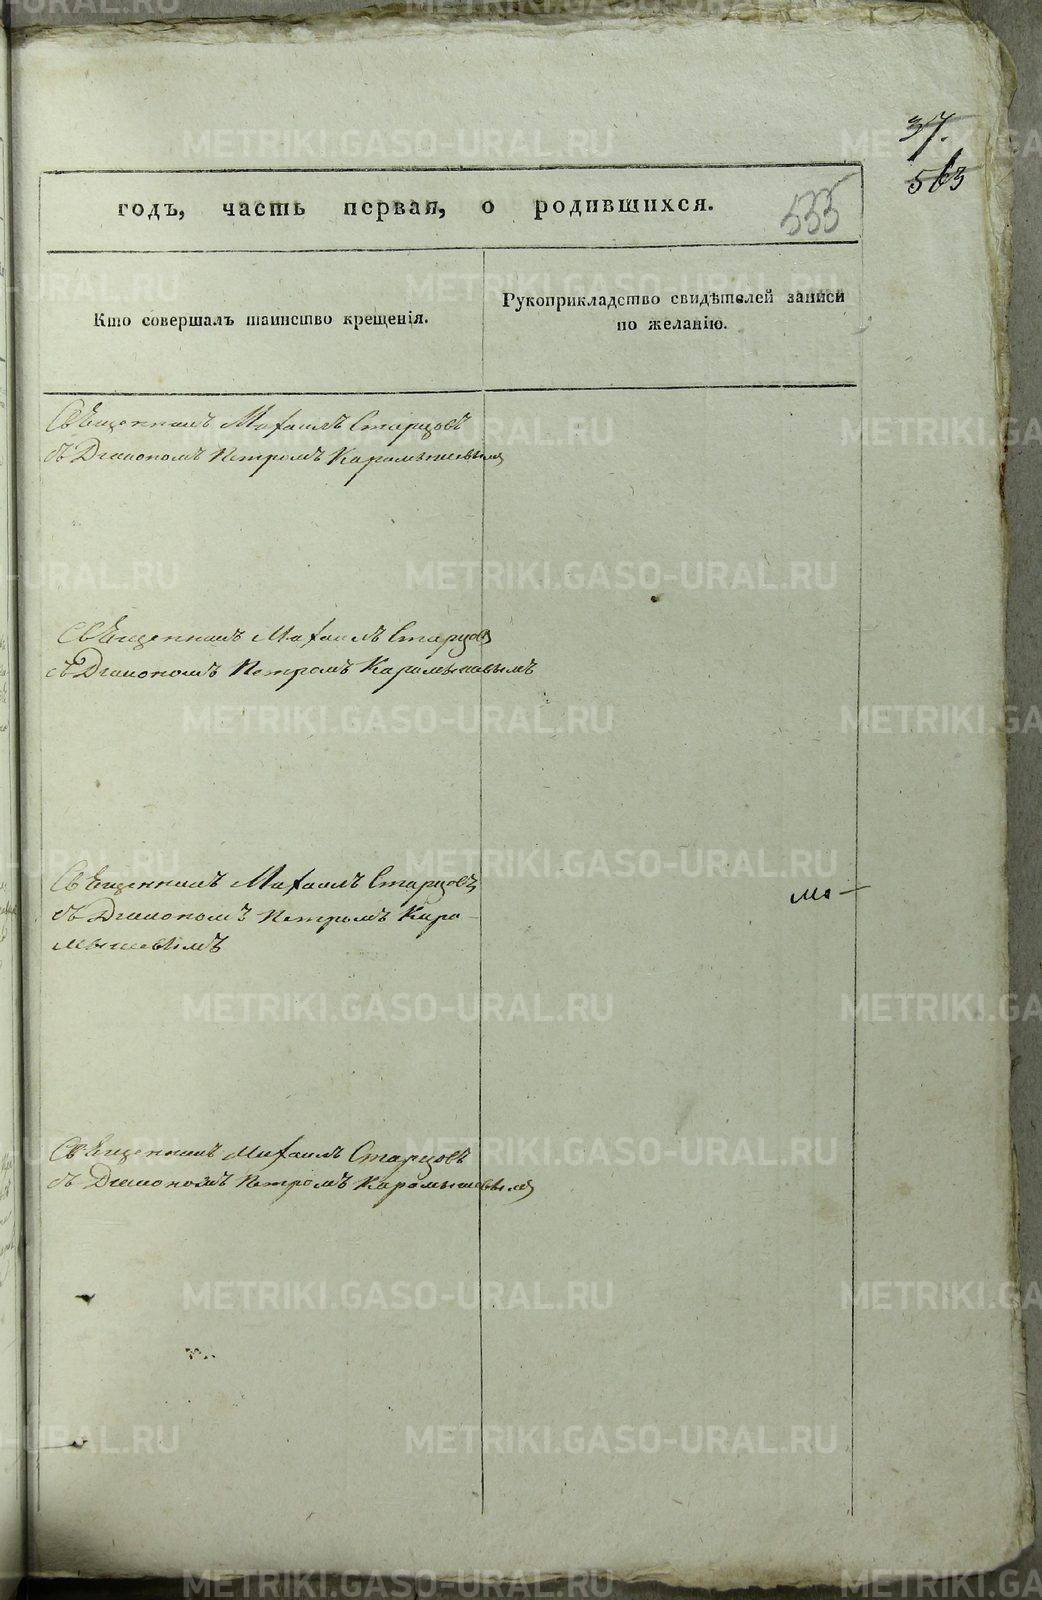 37.
563
годъ, часть первая, о родившихся.
555
Кто совершалъ таинство крещенія.
Рукоприкладство свидѣтелей записи
по желанію.
Священникъ Михаилъ Старцовъ
съ Дьякономъ Петромъ Карамышевымъ
Священникъ Михаилъ Старцовъ
съ Дьякономъ Петромъ Карамышевымъ
Священникъ Михаилъ Старцовъ
съ Дьякономъ Петромъ Кара-
мышевымъ
Священникъ Михаилъ Старцовъ
съ Дьякономъ Петромъ Карамышевымъ
METRIKI.GASO-URAL.RU